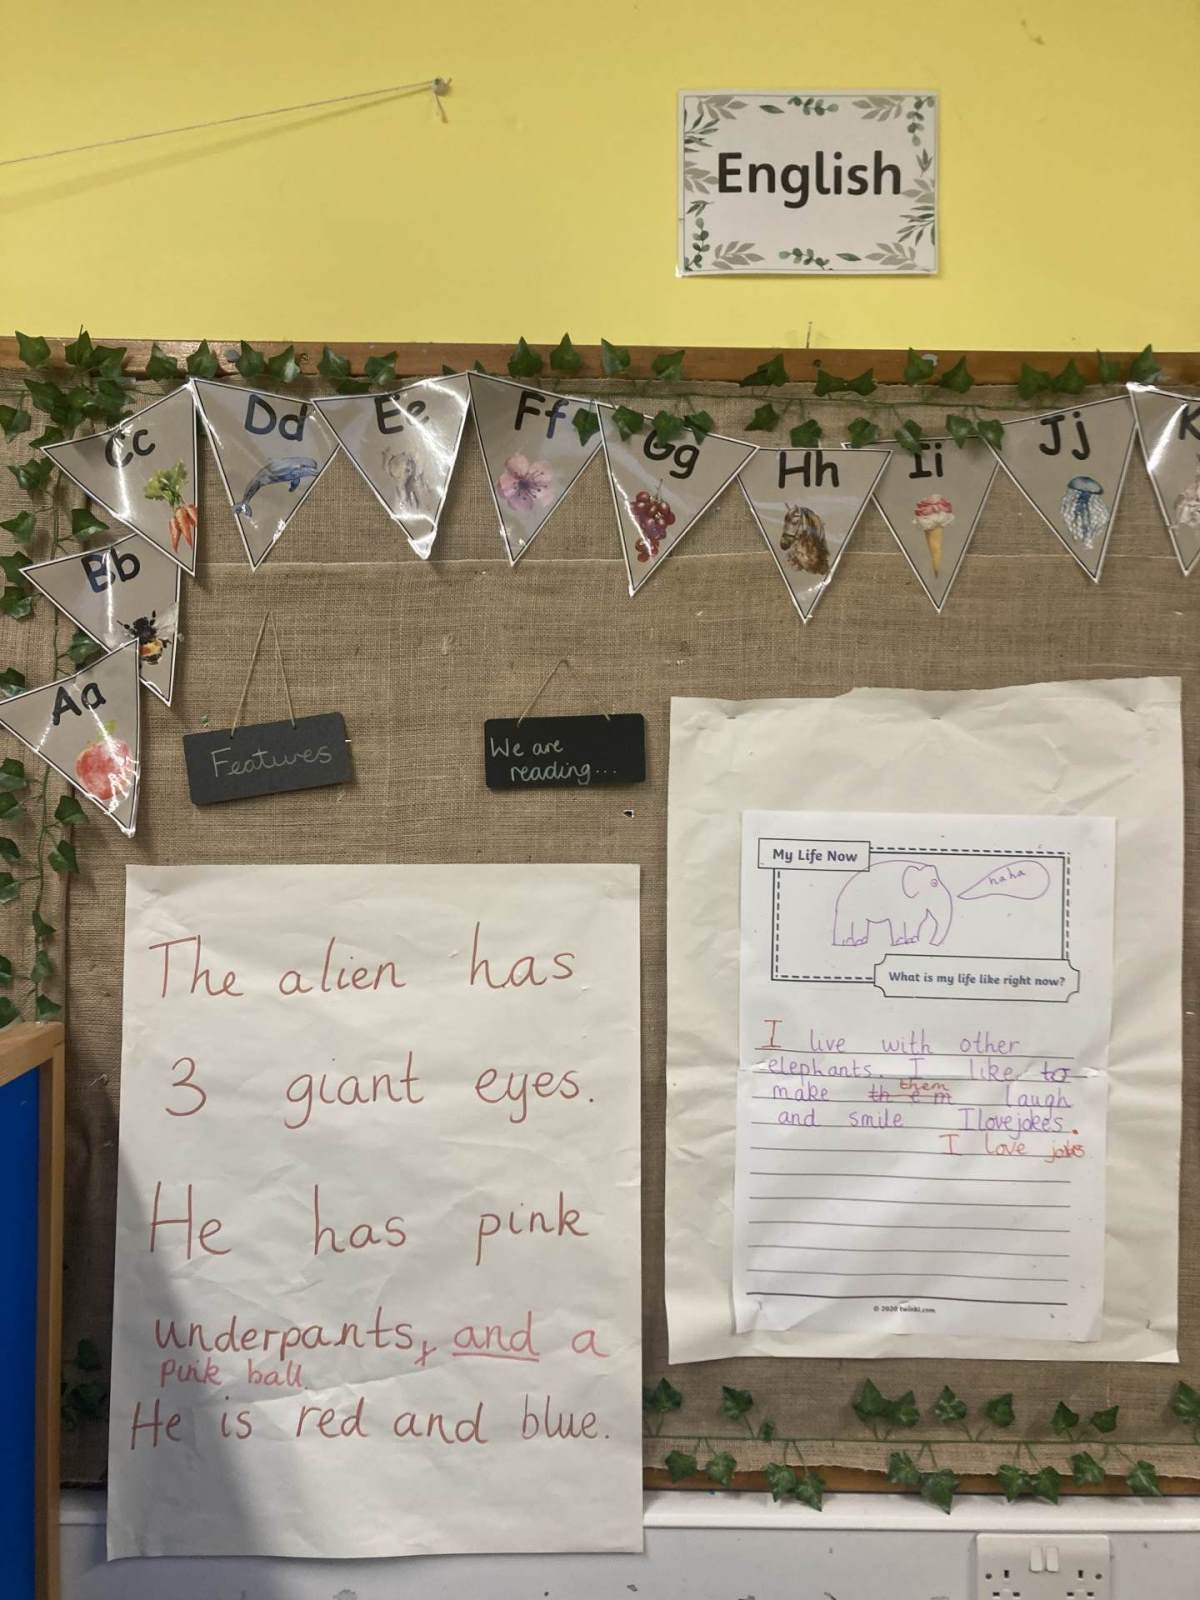 English
Aa
Bb
Cc
Dd
Ee
Ff
Gg
Hh
Ii
Jj
K
Features
We are
reading...
The alien has
3 giant eyes.
He has pink
underpants, and a
pink ball.
He is red and blue.
My Life Now
haha
What is my life like right now?
I live with other
elephants. I like to
them
make them laugh
and smile Ilovejokes.
I love jokes
© 2020 twinkl.com